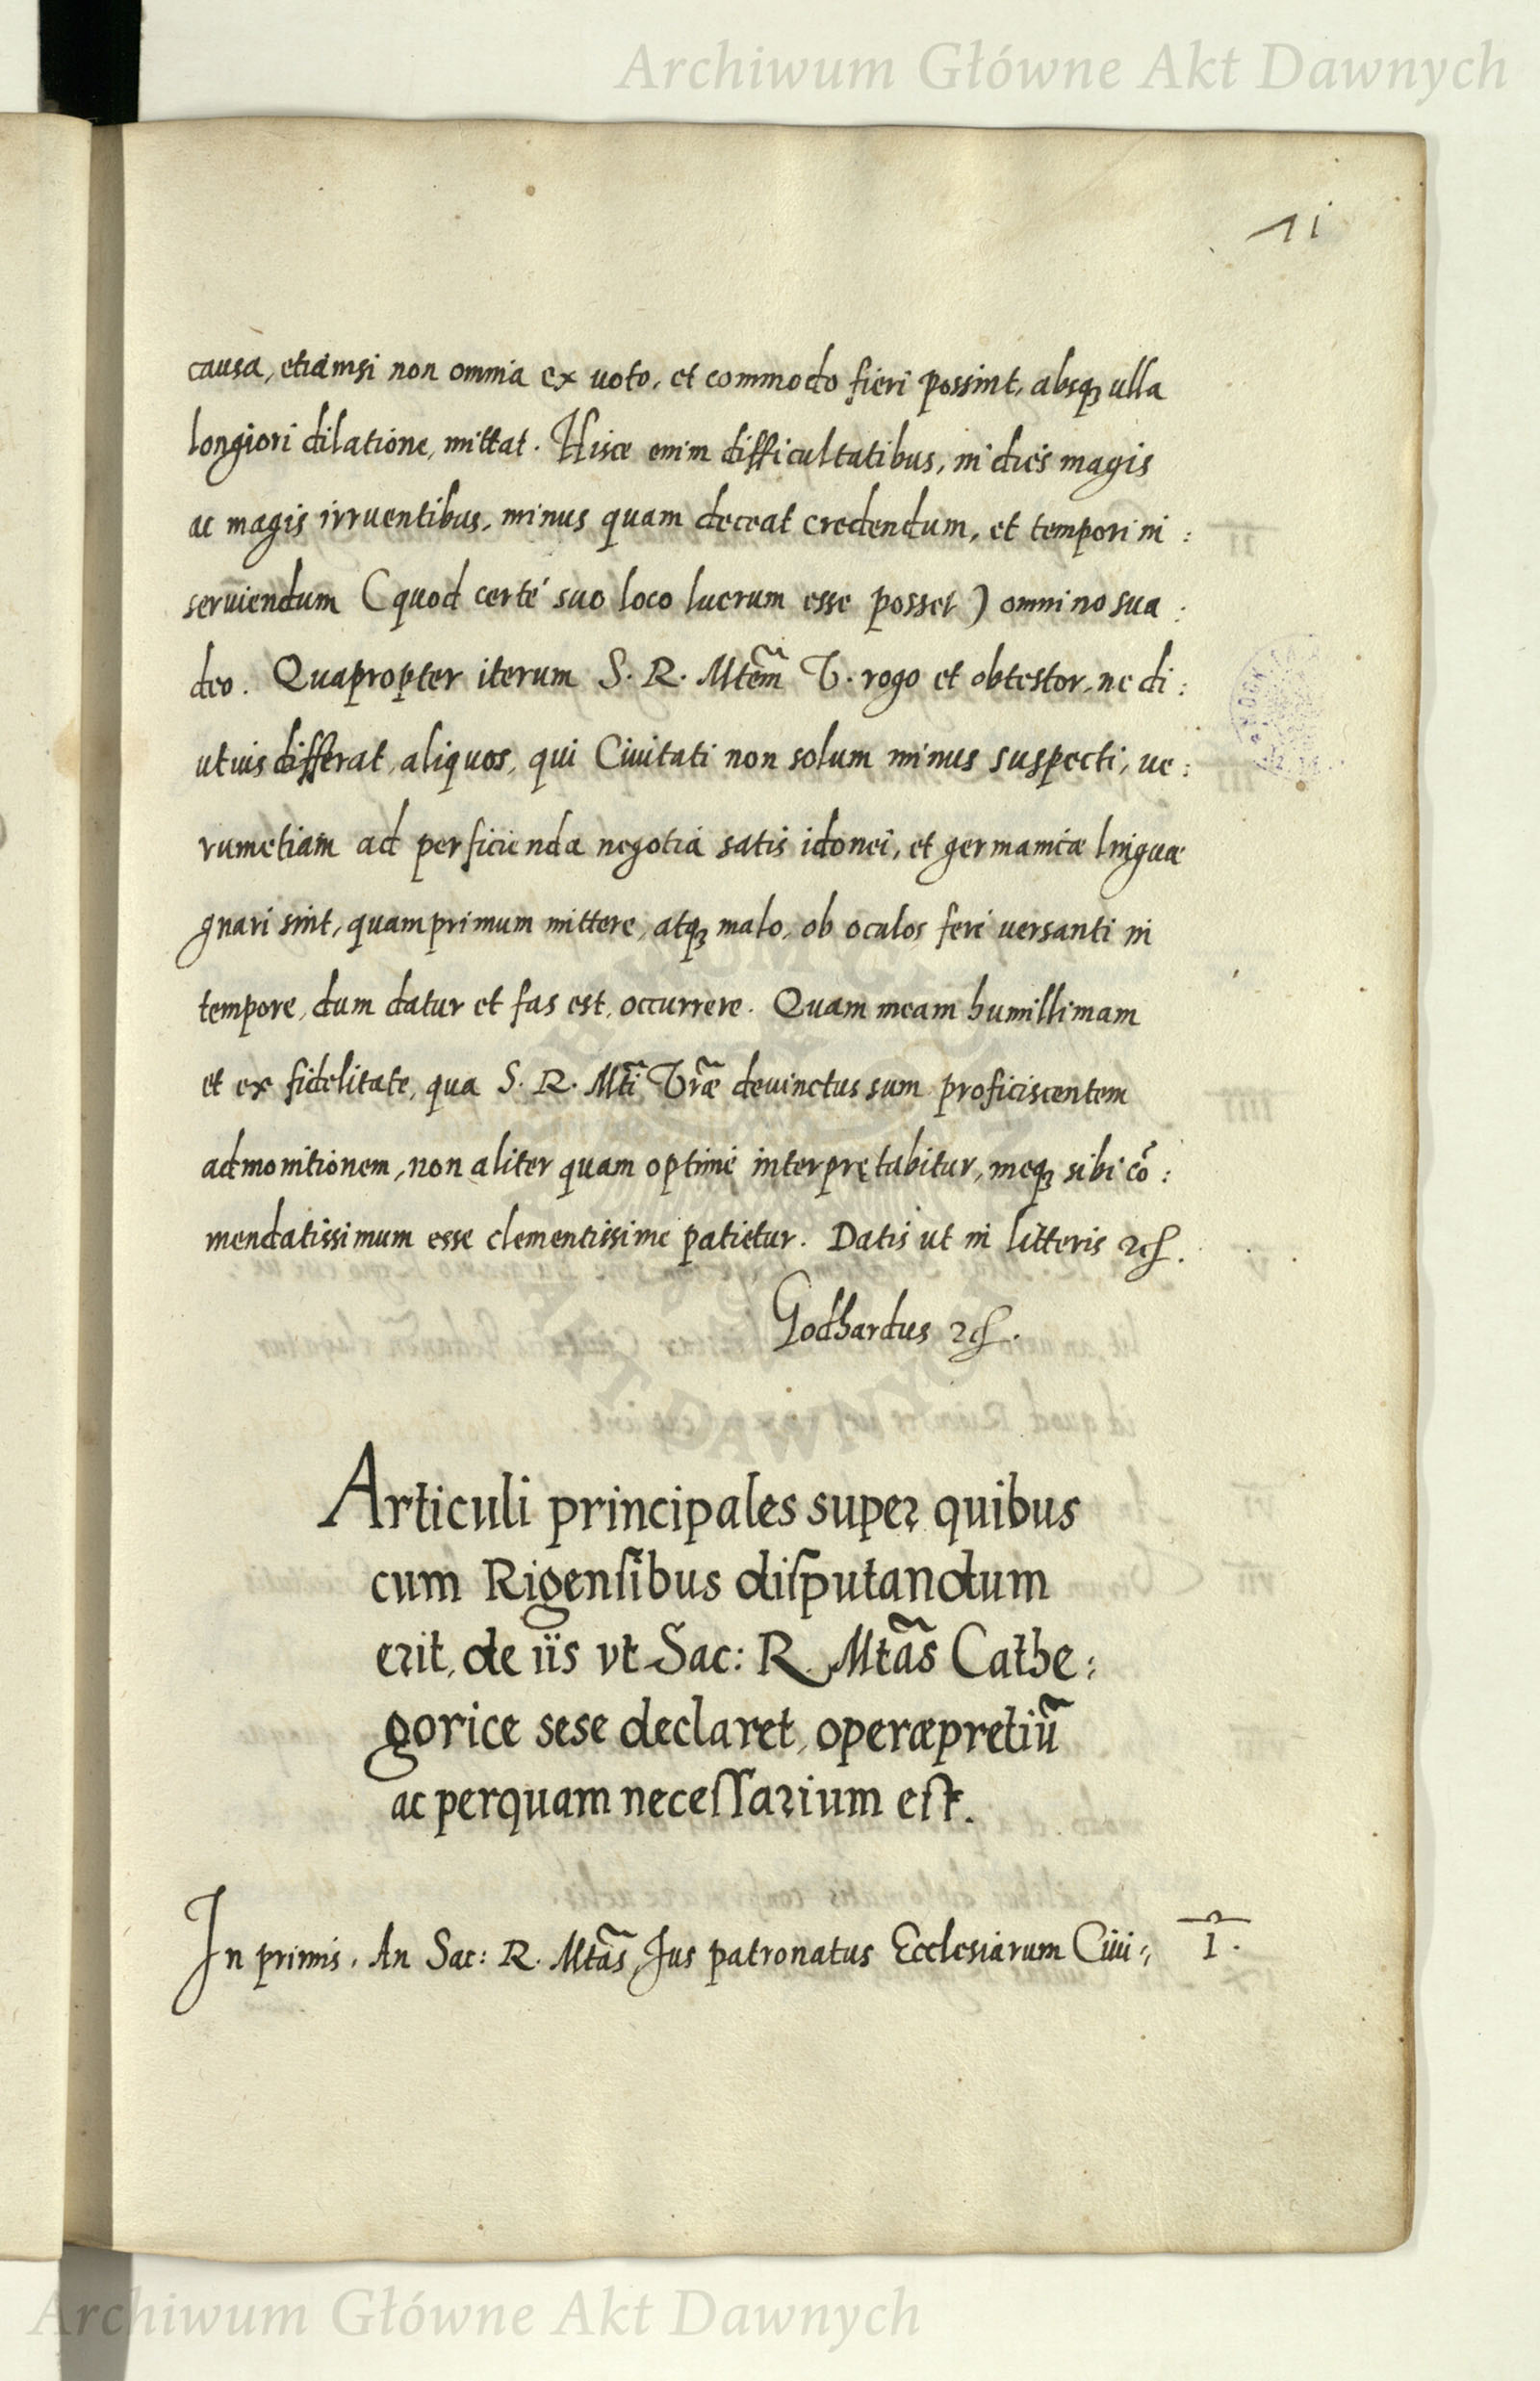 Archiwum Główne Akt Dawnych
11
causa, etiamsi non omnia ex uoto, et commodo fieri possint, absq; ulla
longiori dilatione, mittat. Hisce enim difficultatibus, in dies magis
ac magis irruentibus, minus quam deceat credendum, et tempori in :
seruiendum (quod certé suo loco lucrum esse posset) omnino sua :
deo. Quapropter iterum S. R. Mtem̃ V. rogo et obtestor, ne di :
utius differat, aliquos, qui Ciuitati non solum minus suspecti, ue :
rumetiam ad perficienda negotia satis idonei, et germanicæ linguæ
gnari sint, quamprimum mittere, atq; malo, ob oculos feré uersanti in
tempore, dum datur et fas est, occurrere. Quam meam humillimam
et ex fidelitate, qua S. R. Mtĩ Vrãe deuinctus sum proficiscentem
admonitionem, non aliter quam optimé interprętabitur, meq; sibi cõ :
mendatissimum esse clementissime patietur. Datis ut in litteris ꝛc.
Godhardus ꝛc.
Articuli principales super quibus
cum Rigensibus disputandum
erit, de iis vt Sac: R. Mtãs Cathe :
gorice sese declaret, operæpretiũ
ac perquam necessarium est.
In primis. An Sac: R. Mtãs Jus patronatus Ecclesiarum Ciui : I.
Archiwum Główne Akt Dawnych